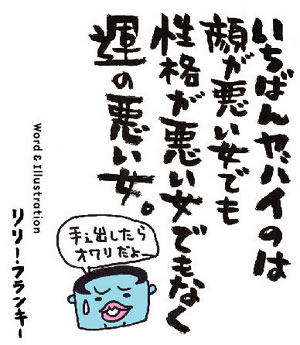 いちばんヤバイのは
顔が悪い女でも
性格が悪い女でもなく
運の悪い女。
手ぇ出したら
オワリだよ
Word & Illustration
リリー・フランキー